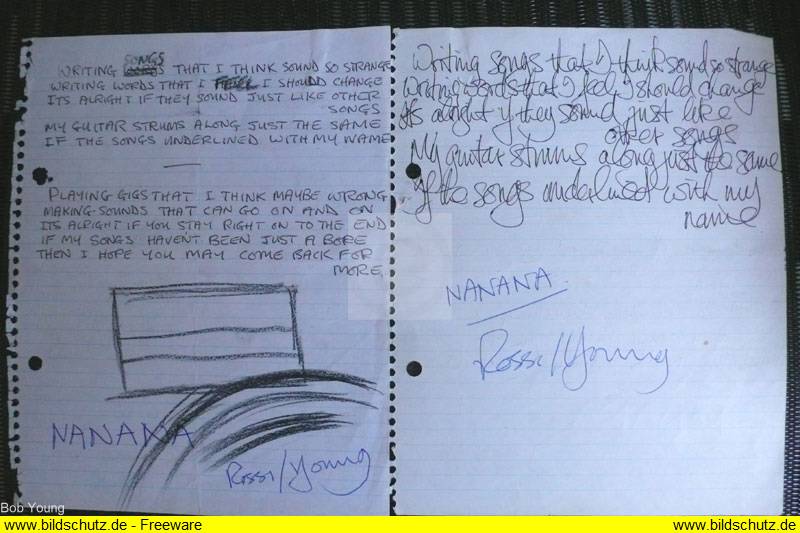 WRITING SONGS THAT I THINK SOUND SO STRANGE
WRITING WORDS THAT I FEEL I SHOULD CHANGE
ITS ALRIGHT IF THEY SOUND JUST LIKE OTHER
SONGS
MY GUITAR STRUMS ALONG JUST THE SAME
IF THE SONGS UNDERLINED WITH MY NAME
PLAYING GIGS THAT I THINK MAYBE WRONG
MAKING SOUNDS THAT CAN GO ON AND ON
ITS ALRIGHT IF YOU STAY RIGHT ON TO THE END
IF MY SONGS HAVEN'T BEEN JUST A BORE
THEN I HOPE YOU MAY COME BACK FOR
MORE
NANANA
Rossi/Young
Writing songs that I think sound so strange
Writing words that I feel I should change
Its alright if they sound just like
other songs
My guitar strums along just the same
If the songs underlined with my
name
NANANA
Rossi/Young
Bob Young
www.bildschutz.de - Freeware
www.bildschutz.de